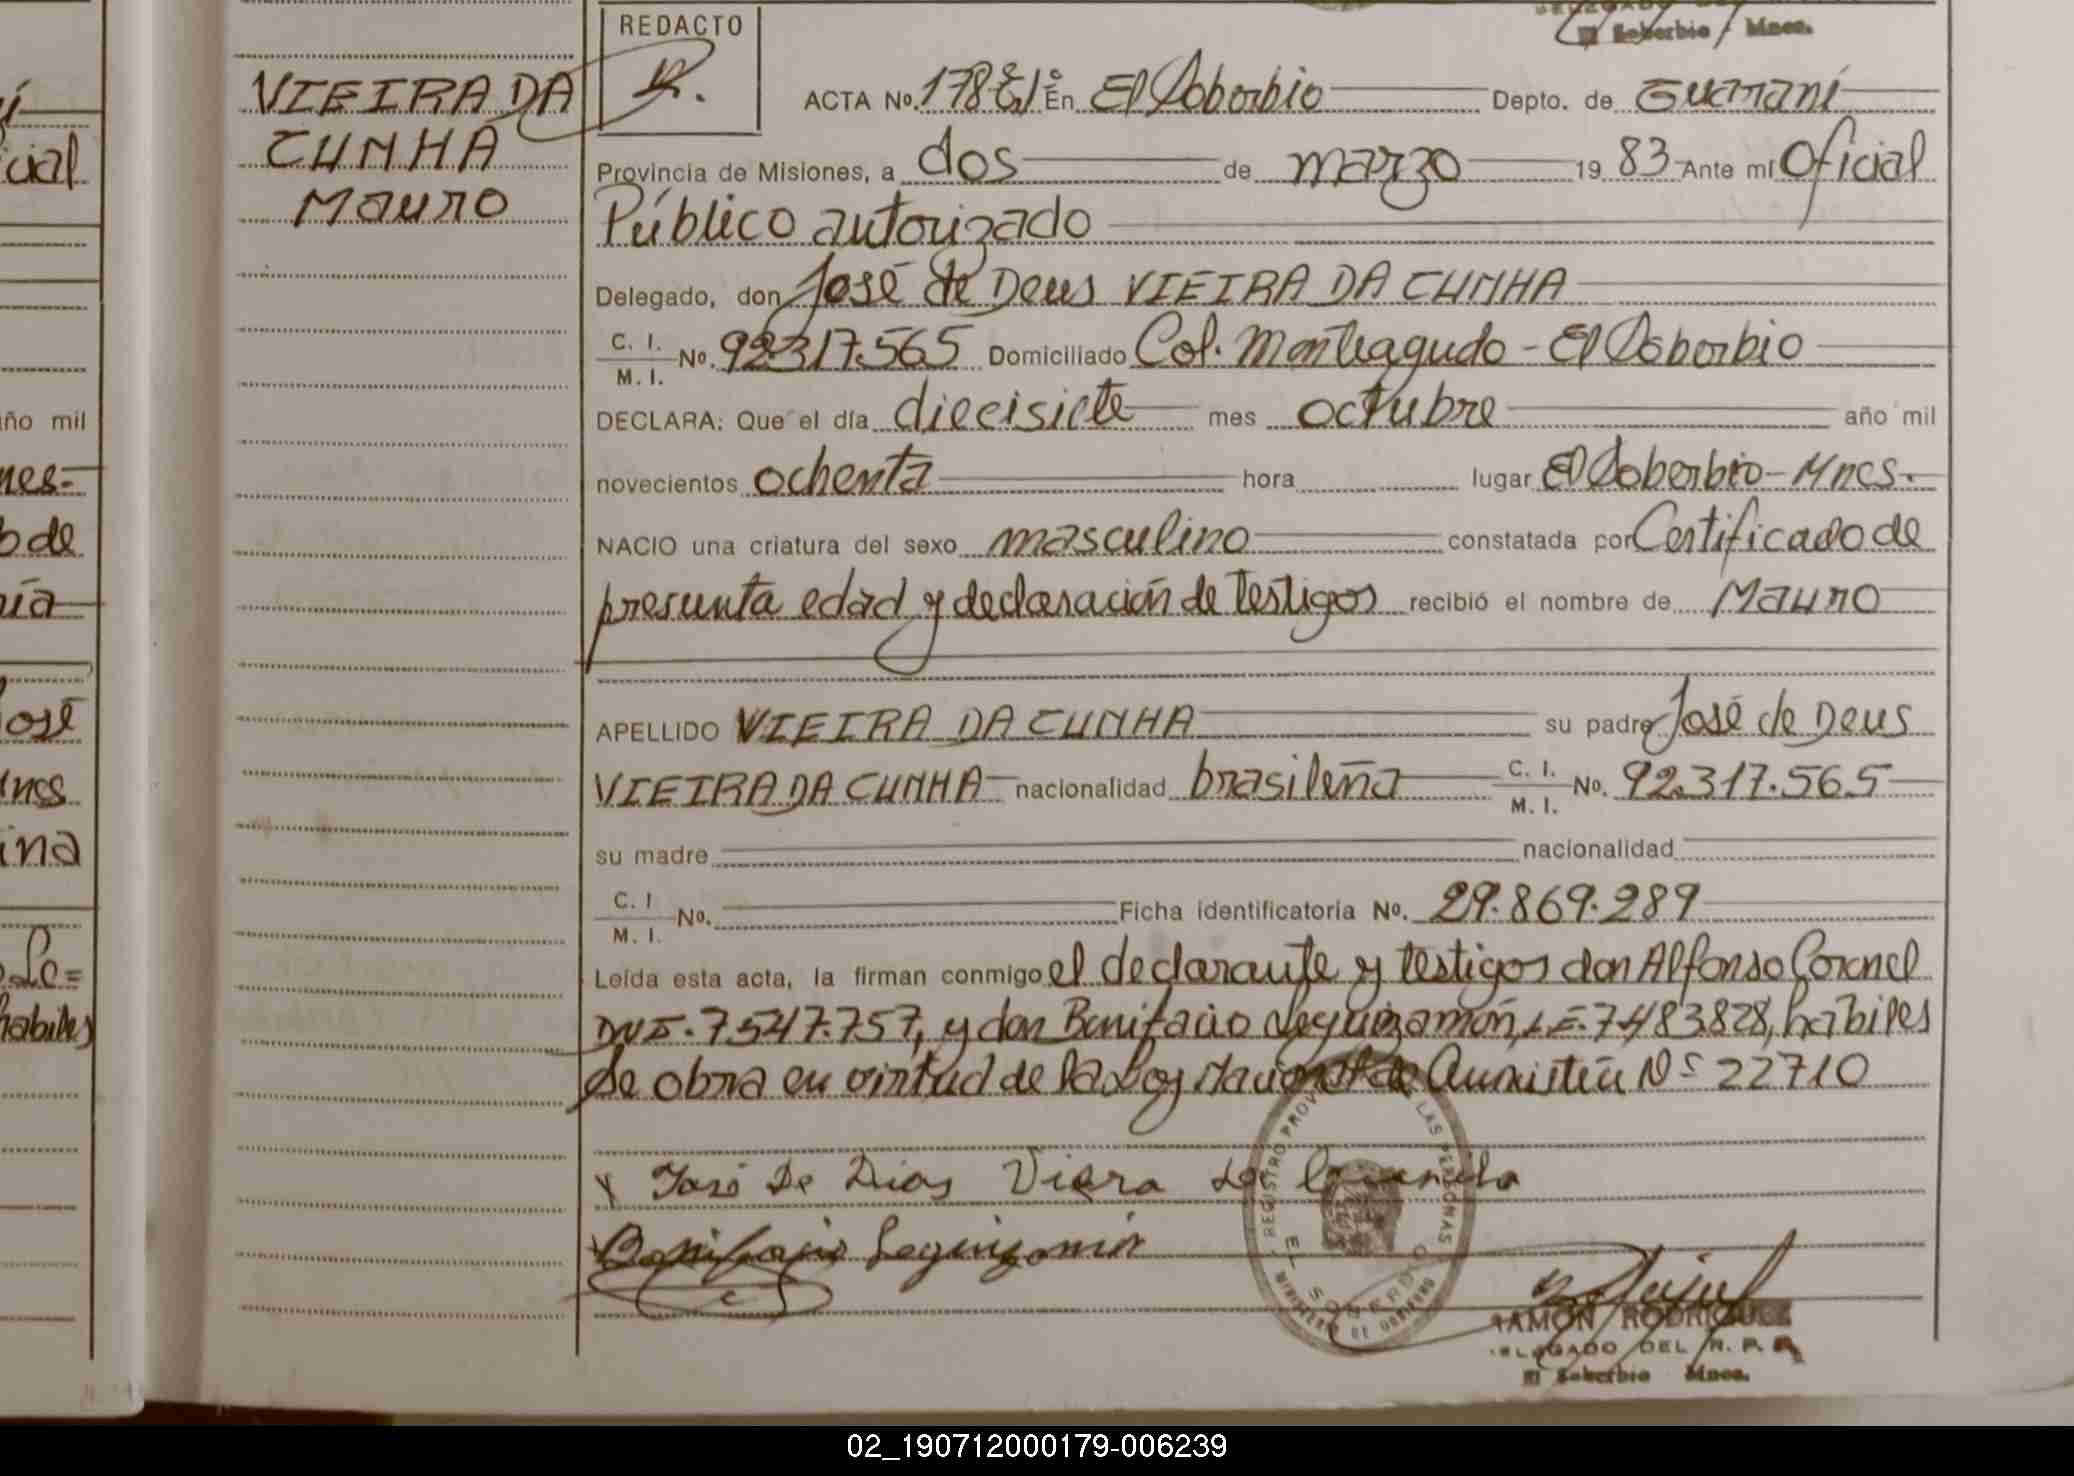 VIEIRA DA
CUNHA
Mauro
REDACTO
Soberbio Mnes.
ACTA No. 178 En El Soberbio Depto. de Guaraní
Provincia de Misiones, a dos de marzo 19 83 Ante mí Oficial
Público autorizado
Delegado, don José de Deus VIEIRA DA CUNHA
C. I.
M. I. No. 92.317.565 Domiciliado Col. Monteagudo - El Soberbio
DECLARA: Que el día diecisiete mes octubre año mil
novecientos ochenta hora lugar El Soberbio - Mnes.
NACIO una criatura del sexo masculino constatada por Certificado de
presunta edad y declaración de testigos recibió el nombre de Mauro
APELLIDO VIEIRA DA CUNHA su padre José de Deus
VIEIRA DA CUNHA nacionalidad brasileña C. I.
M. I. No. 92.317.565
su madre nacionalidad
C. I
M. I. No. Ficha identificatoria No. 29.869.289
Leída esta acta, la firman conmigo el declarante y testigos don Alfonso Coronel
DNI. 7547.757, y don Bonifacio Leguizamón, L.E. 7.483.828, habiles
Se obra en virtud de la Ley Nacional de Amnistía Nº 22710
José De Dios Viera da Cunha
Bonifacio Leguizamón
REGISTRO PROV LAS PERSONAS
EL SOBERBIO
MINISTERIO DE GOBIERNO
RAMON RODRIGUEZ
DELEGADO DEL R. P.
El Soberbio Mnes.
í
cial
año mil
nes.-
o de
ría
José
Mnes
ina
Le=
habiles
02_190712000179-006239